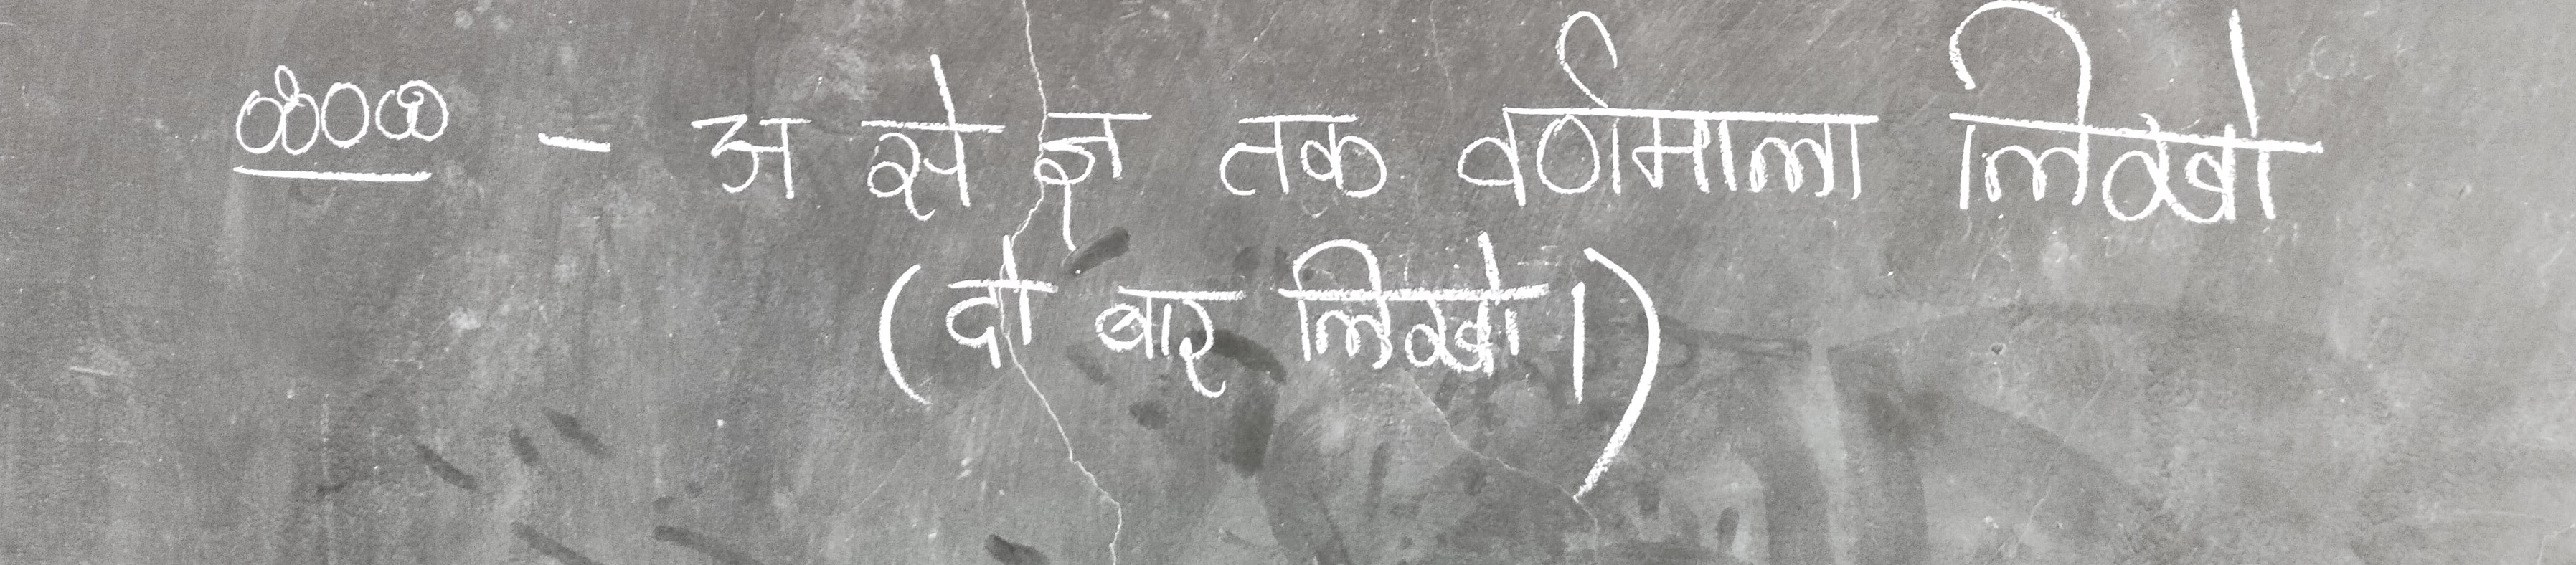 - अ से ज्ञ तक वर्णमाला लिखो
(दो बार लिखो।)